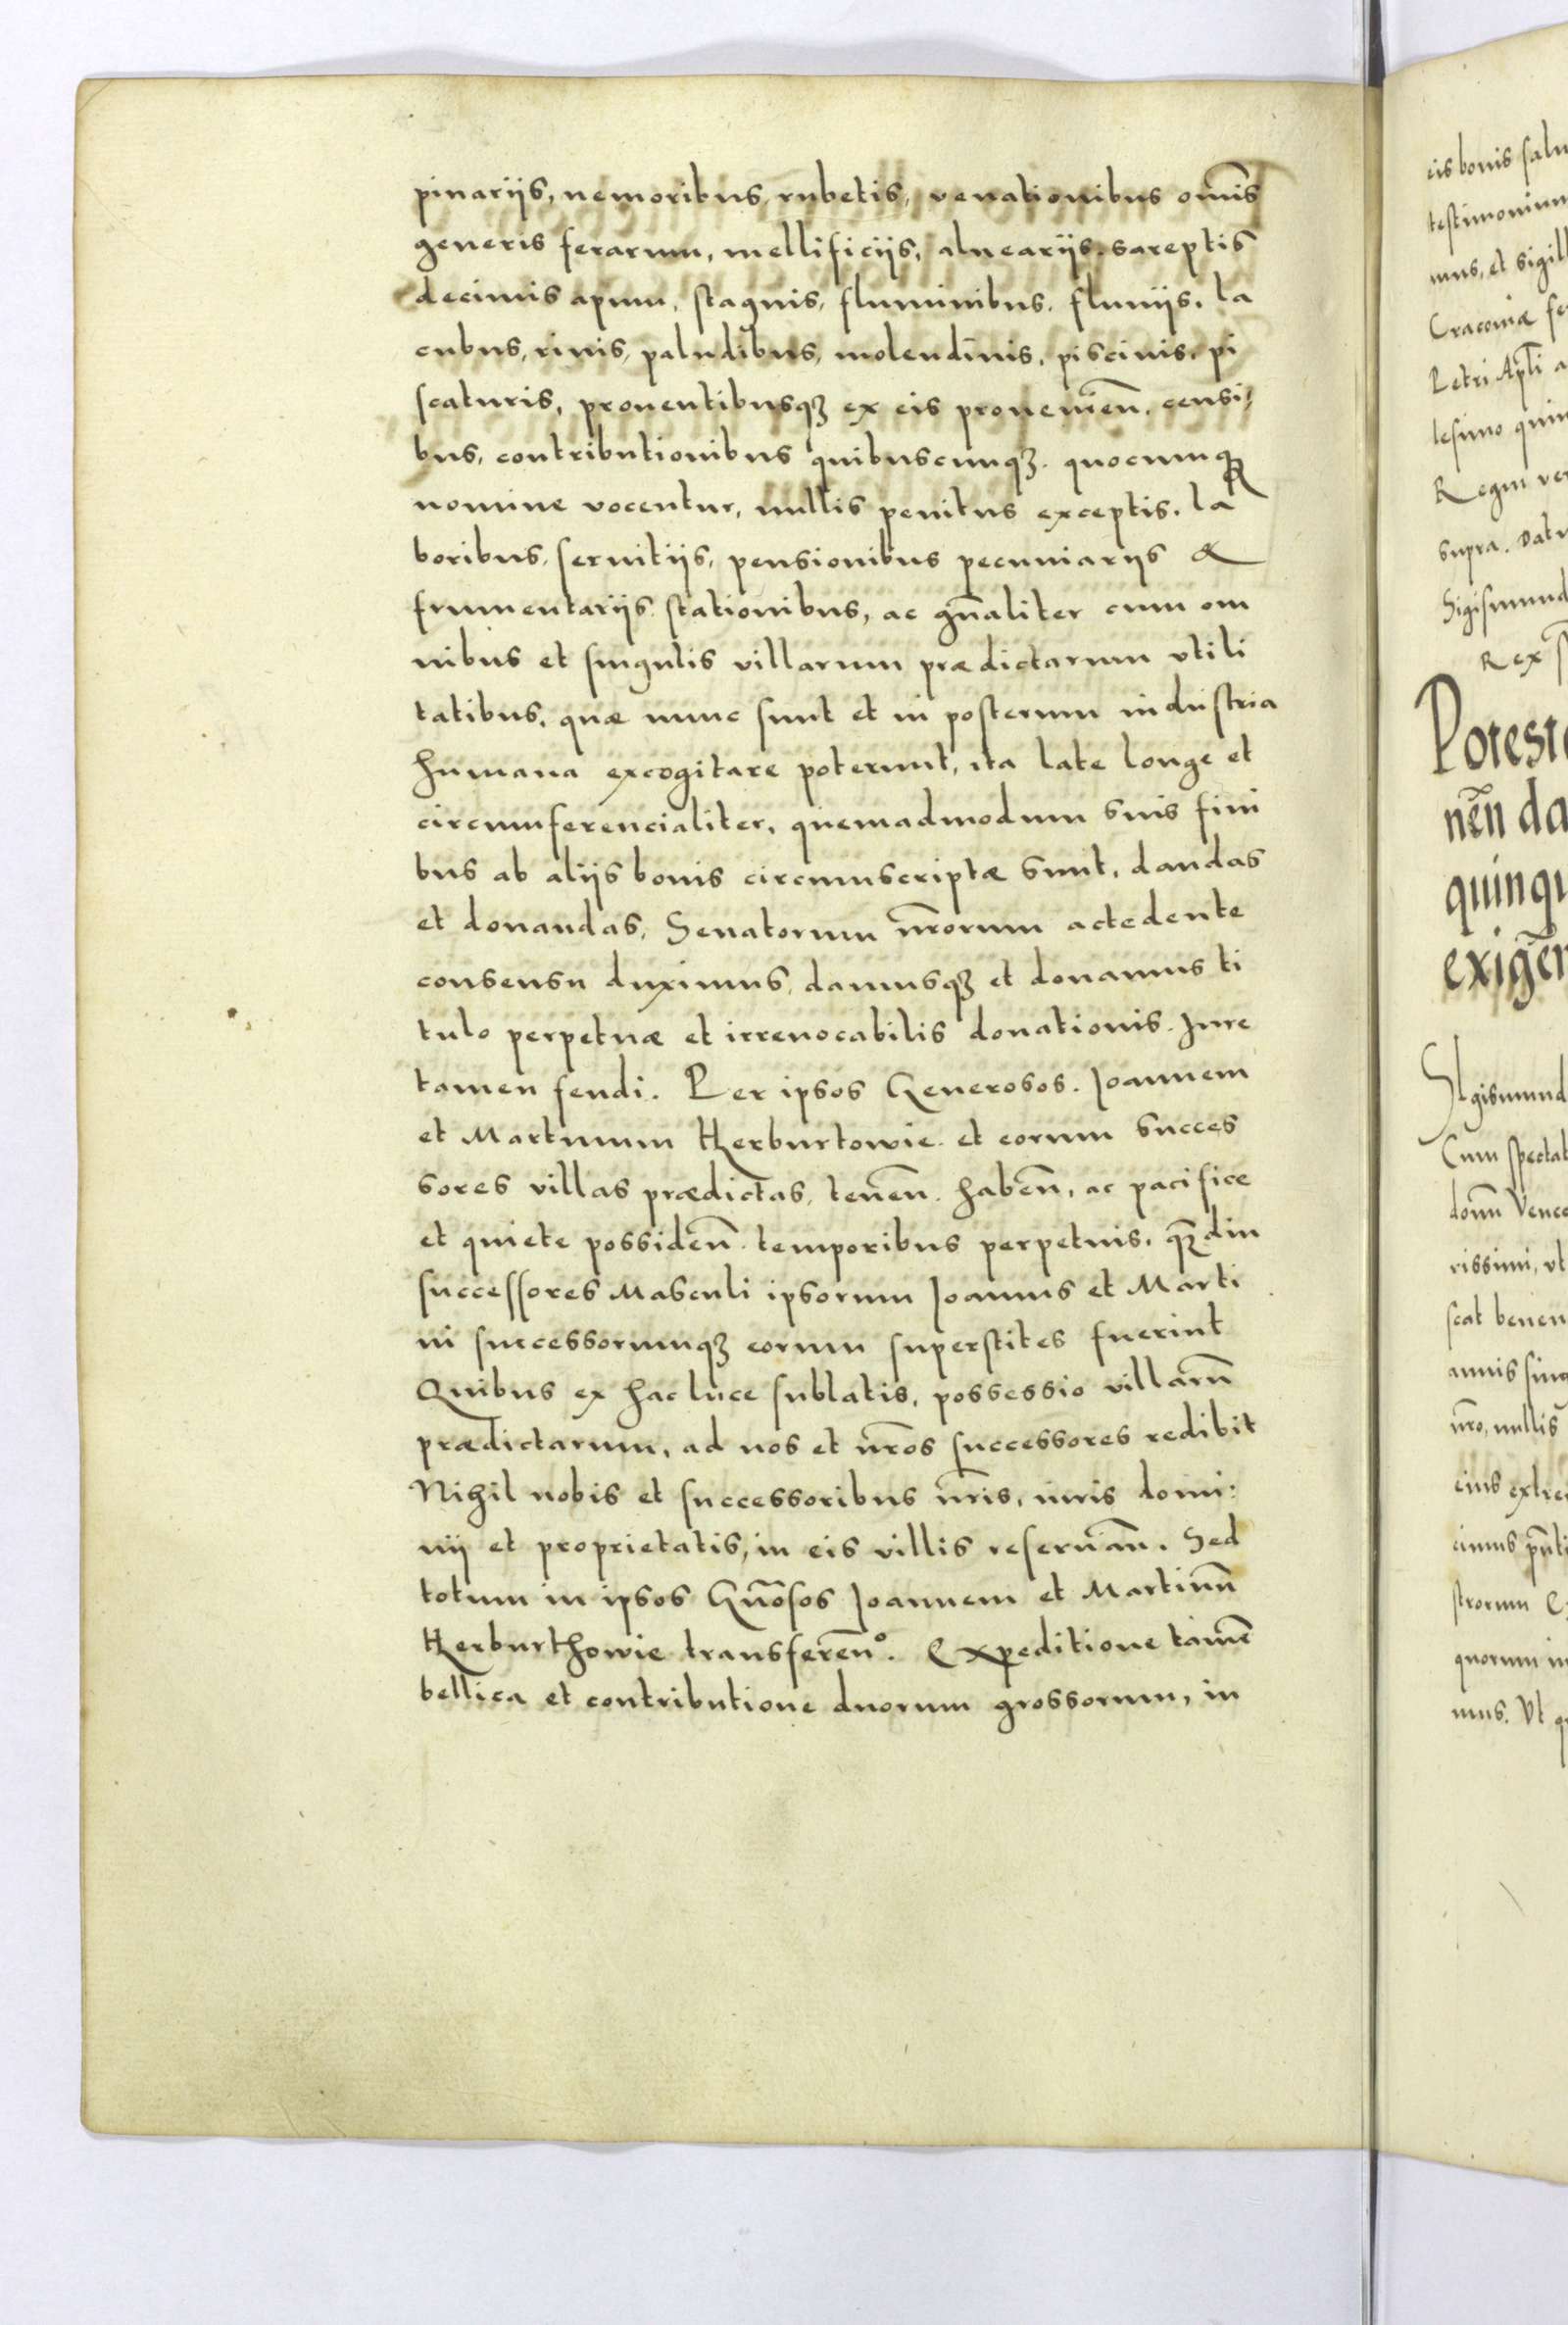 pinarijs, nemoribus, rubetis, venationibus om̃is
generis ferarum, mellificijs, aluearijs. sareptis
decimis apum, stagnis, fluminibus. fluuijs. la
cubus, riuis, paludibus, molendinis, piscinis. pi
scaturis, prouentibusqꝫ ex eis prouenieñ. censi⸗
bus, contributionibus quibuscunqꝫ. quocumqꝫ
nomine vocentur, nullis penitus exceptis. la
boribus, seruitijs, pensionibus pecuniarijs &
frumentarijs stationibus, ac gñaliter cum om
nibus et singulis villarum prædictarum vtili
tatibus, quæ nunc sunt et in posterum industria
humana excogitare poterunt, ita late longe et
circumferencialiter, quemadmodum suis fini
bus ab alijs bonis circumscriptæ sunt, dandas
et donandas, Senatorum nr̃orum accedente
consensu duximus, damusqꝫ et donamus ti
tulo perpetuæ et irreuocabilis donationis. Jure
tamen feudi. Per ipsos Generosos. Joannem
et Martinum Herburtowie. et eorum succes
sores villas prædictas, teneñ. habeñ, ac pacifice
et quiete possideñ. temporibus perpetuis. qꝫ̃diu
successores Masculi ipsorum Joannis et Marti
ni successorumqꝫ eorum superstites fuerint
Quibus ex hac luce sublatis, possessio villarũ
prædictarum, ad nos et nr̃os successores redibit
Nihil nobis et successoribus nr̃is, iuris domi:
nij et proprietatis, in eis villis reseruañ. Sed
totum in ipsos Gñosos Joannem et Martinũ
Herburthowie transfereñ°. Expeditione tamẽ
bellica et contributione duorum grossorum, in
eis bonis
testimonium
mus, et
Cracouiæ
Petri Apl̃i
tesimo
Regni
supra.
Rex
nẽn
Cum
donũ
rissimi, vt
scat
annis
nr̃o, nullis
eius
cimus
strorum
quorum in
mus. Vt